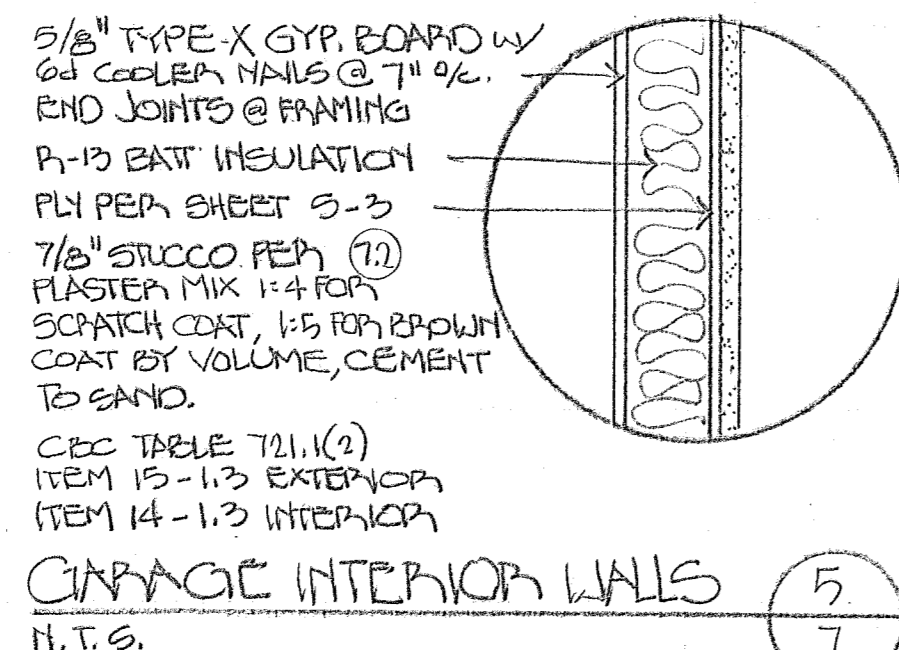 5/8" TYPE-X GYP. BOARD W/
6d COOLER NAILS @ 7" O/C.
END JOINTS @ FRAMING
R-13 BATT INSULATION
PLY PER SHEET S-3
7/8" STUCCO PER 7.2
PLASTER MIX 1:4 FOR
SCRATCH COAT, 1:5 FOR BROWN
COAT BY VOLUME, CEMENT
TO SAND.
CBC TABLE 721.1(2)
ITEM 15-1.3 EXTERIOR
ITEM 14-1.3 INTERIOR
GARAGE INTERIOR WALLS
5
7
N.T.S.